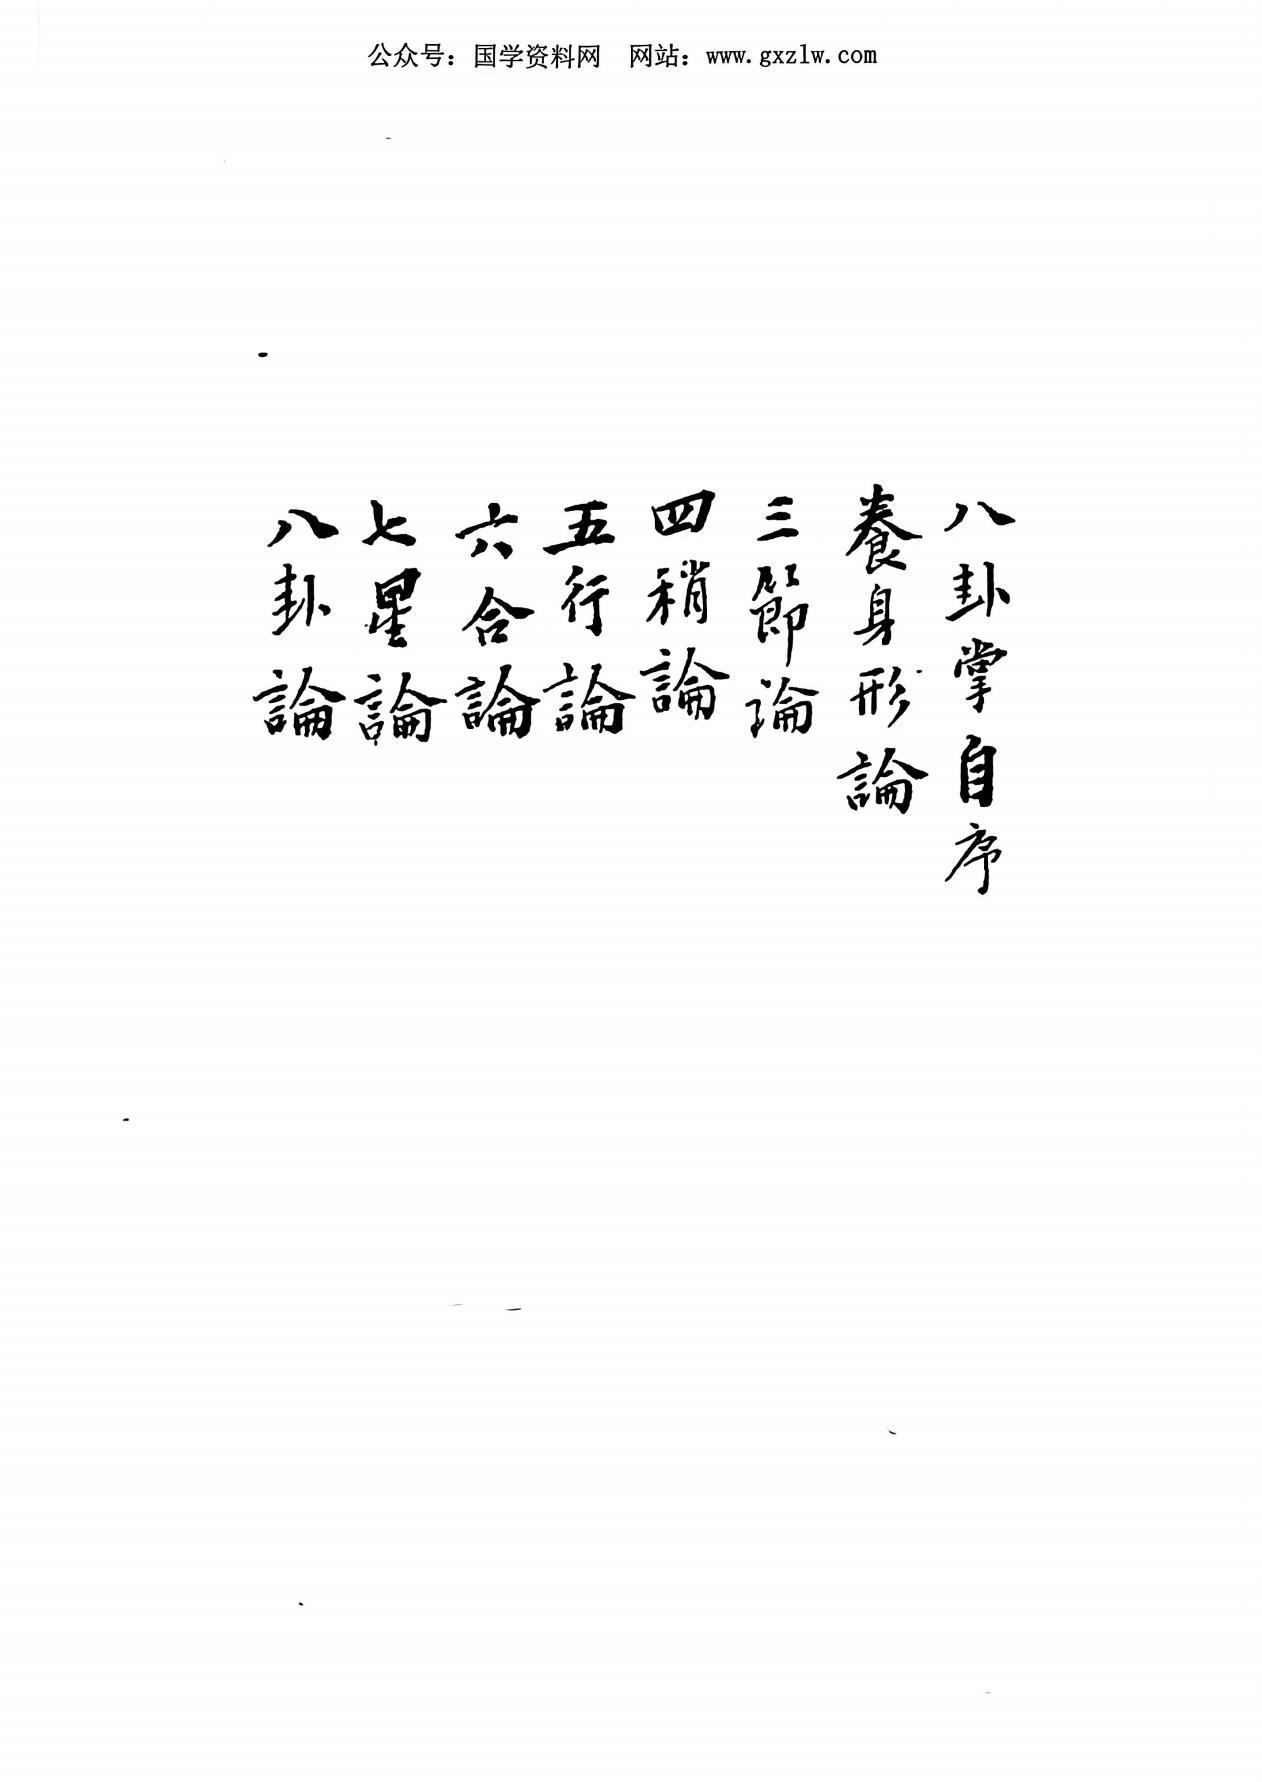 公众号：国学资料网　网站：www.gxzlw.com
八卦掌自序
養身形論
三節論
四稍論
五行論
六合論
七星論
八卦論